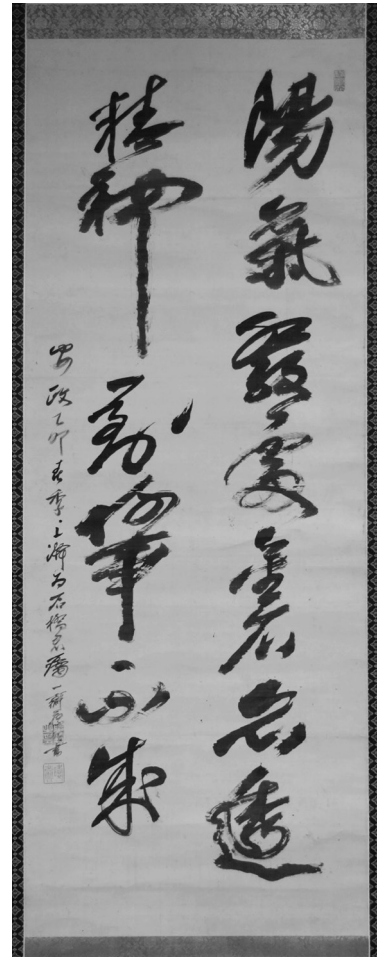 陽氣發處金石亦透
精神一到何事不成
安政乙卯春季上澣為石橋君囑 一齋